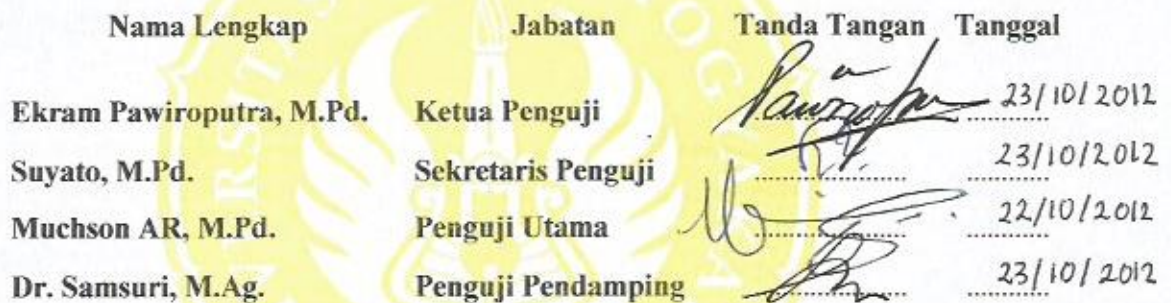 Nama Lengkap Jabatan Tanda Tangan Tanggal
Ekram Pawiroputra, M.Pd. Ketua Penguji 23/10/2012
Suyato, M.Pd. Sekretaris Penguji 23/10/2012
Muchson AR, M.Pd. Penguji Utama 22/10/2012
Dr. Samsuri, M.Ag. Penguji Pendamping 23/10/2012